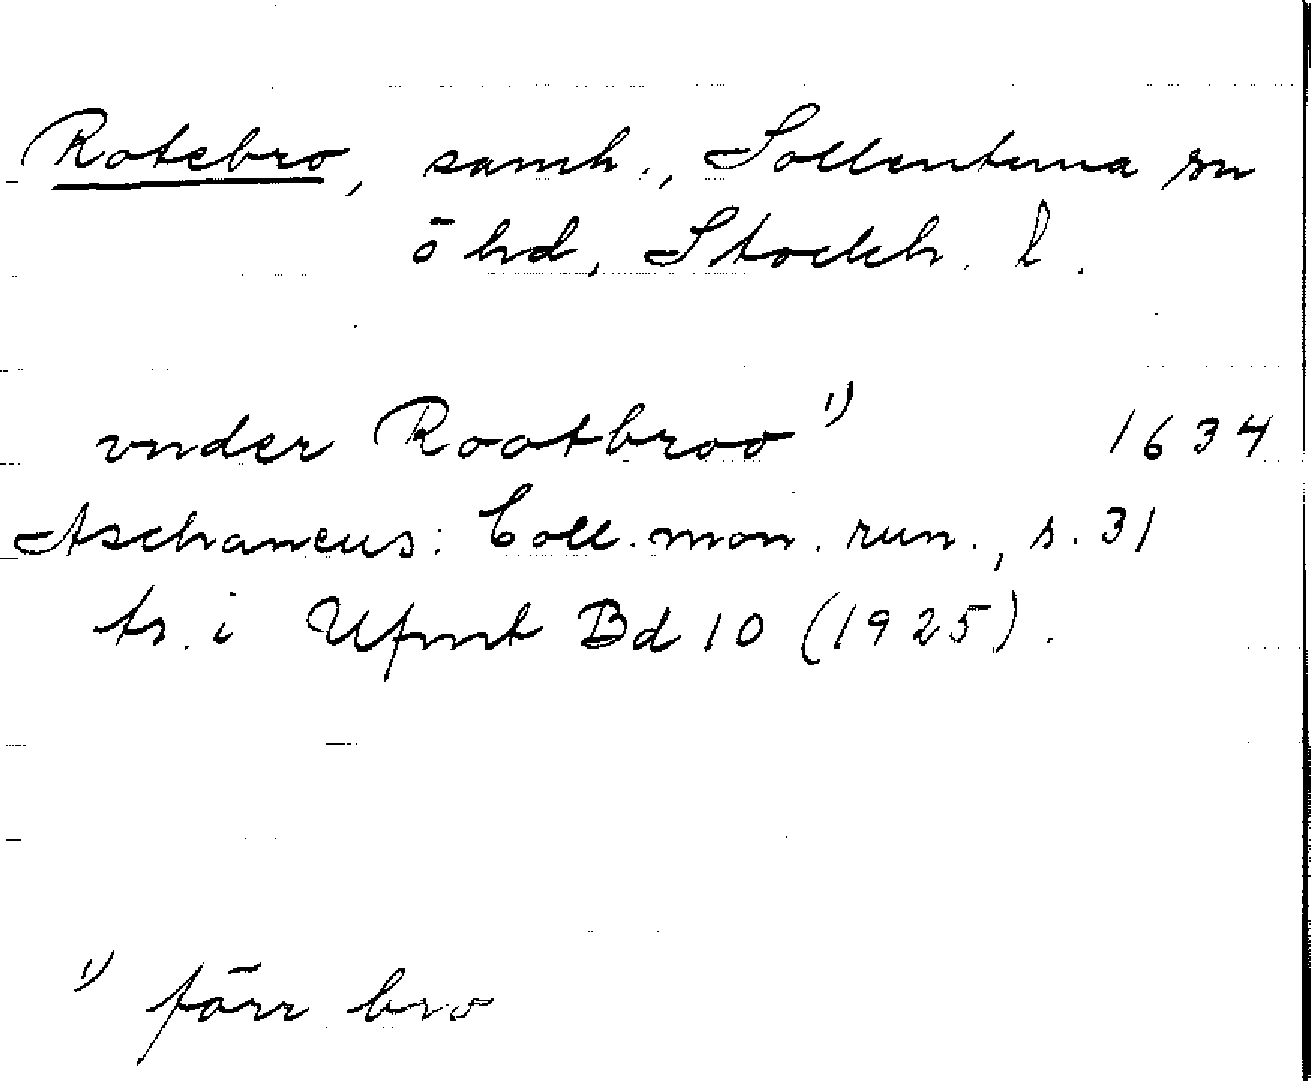 Rotebro, samh., Sollentuna sn
ö hd, Stockh. l.
vnder Rootbroo 1) 1634
Aschaneus: Coll. mon. run., s. 31
ts. i Ufmt Bd 10 (1925).
1) förr bro